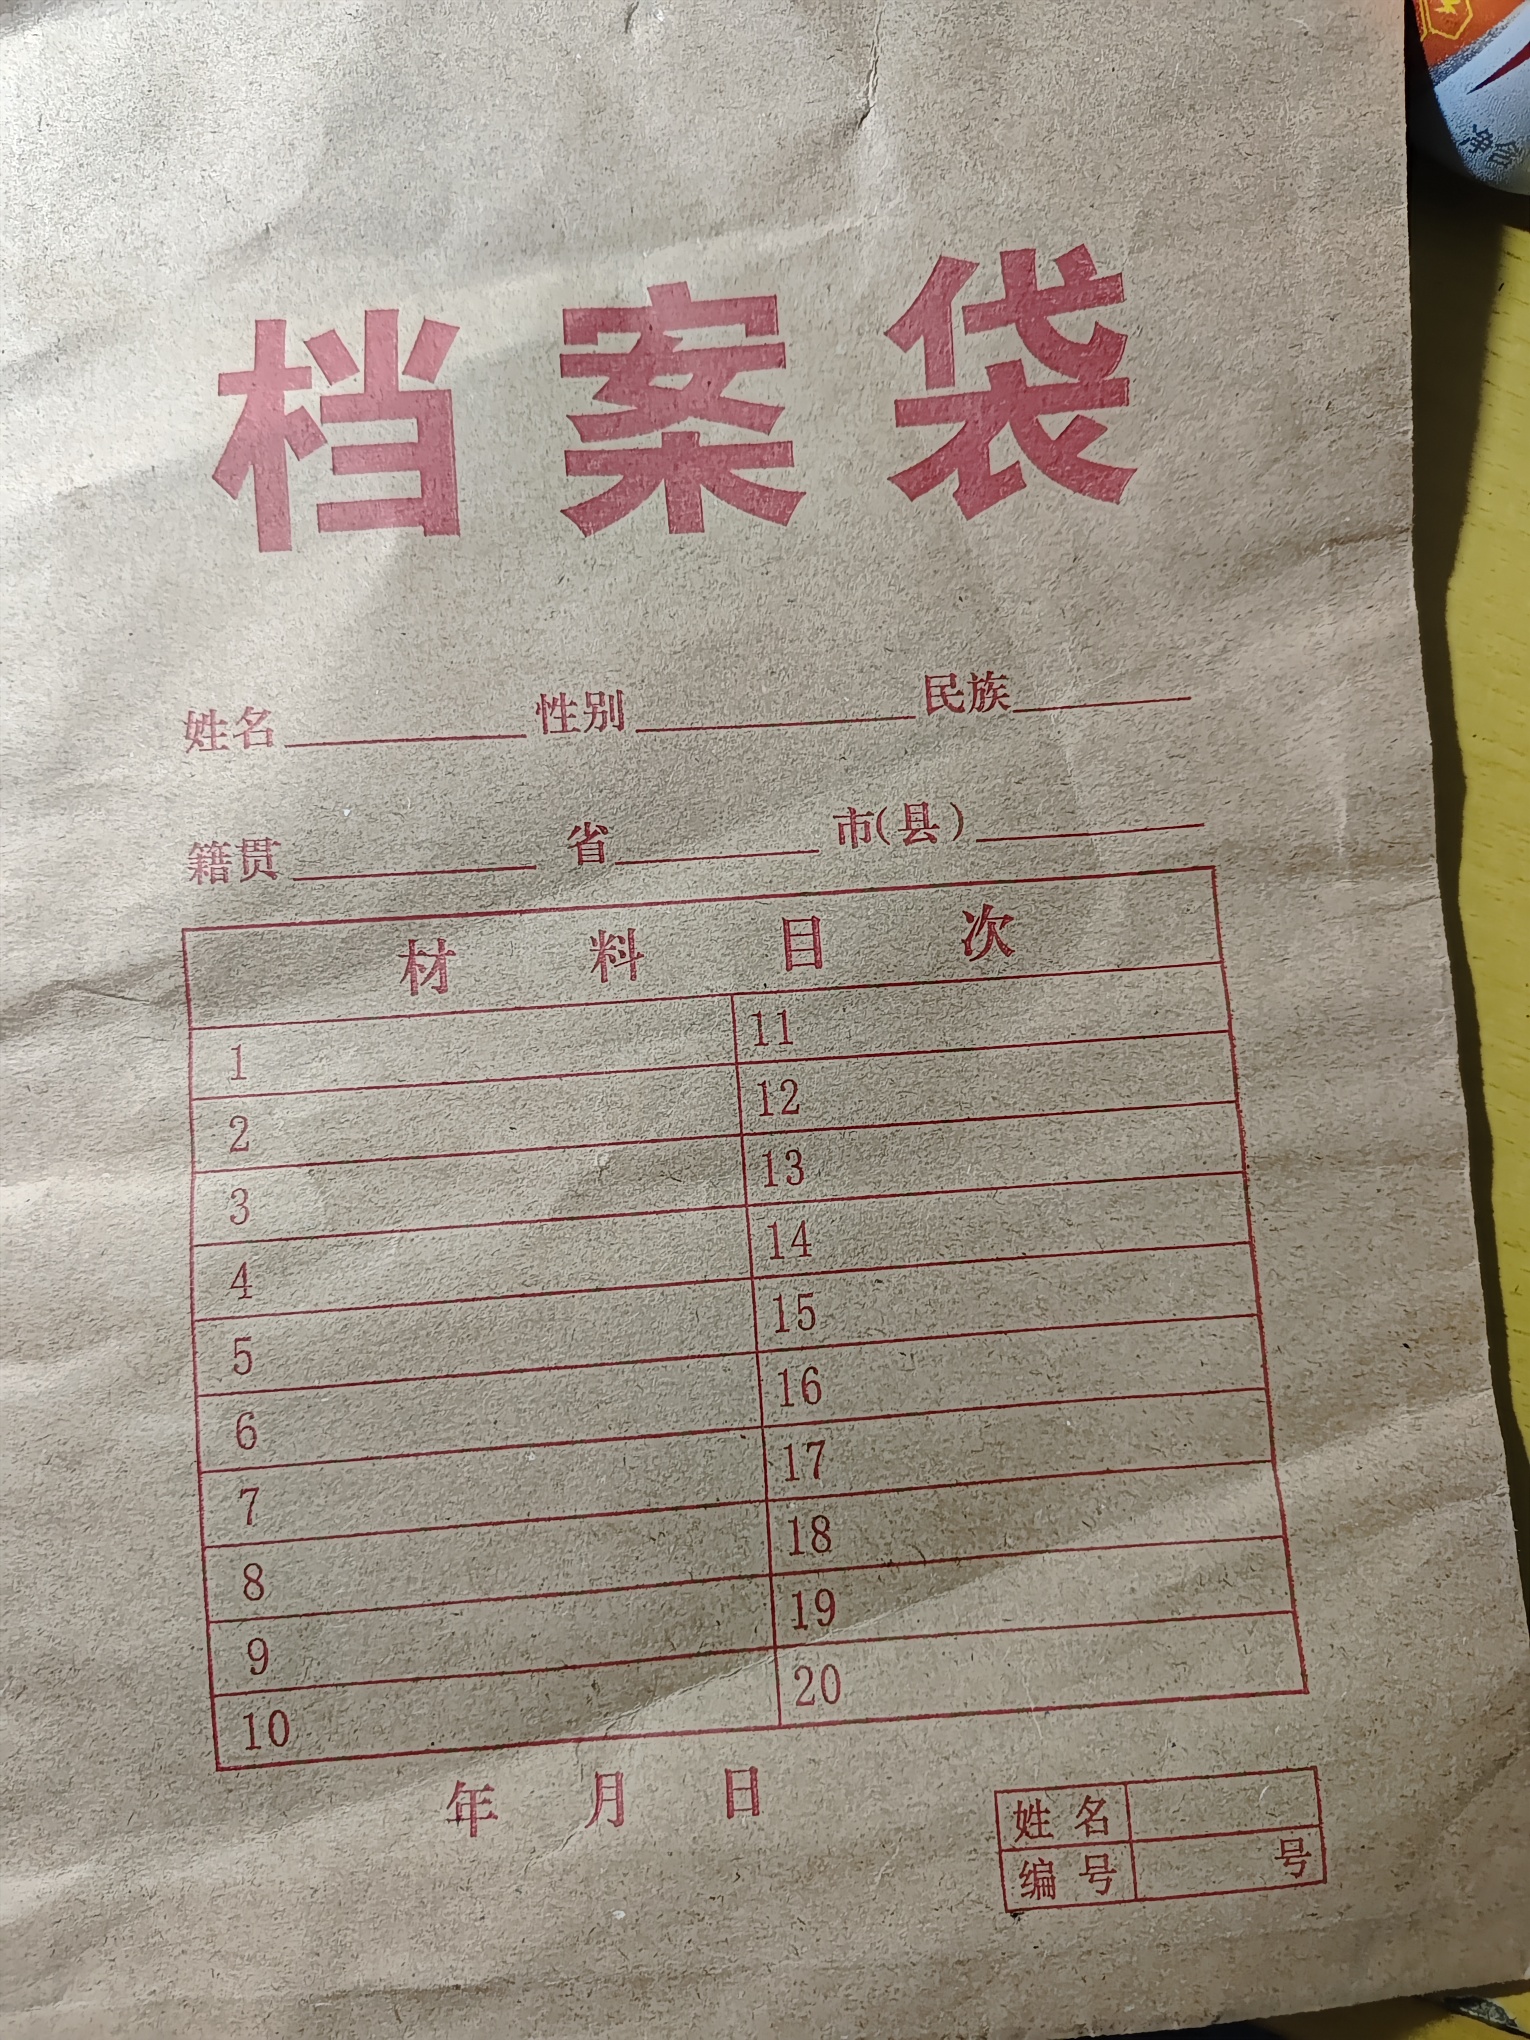 净含
档案袋
姓名 性别 民族
籍贯 省 市(县)
材料目次
1 11
2 12
3 13
4 14
5 15
6 16
7 17
8 18
9 19
10 20
年 月 日
姓名
编号 号